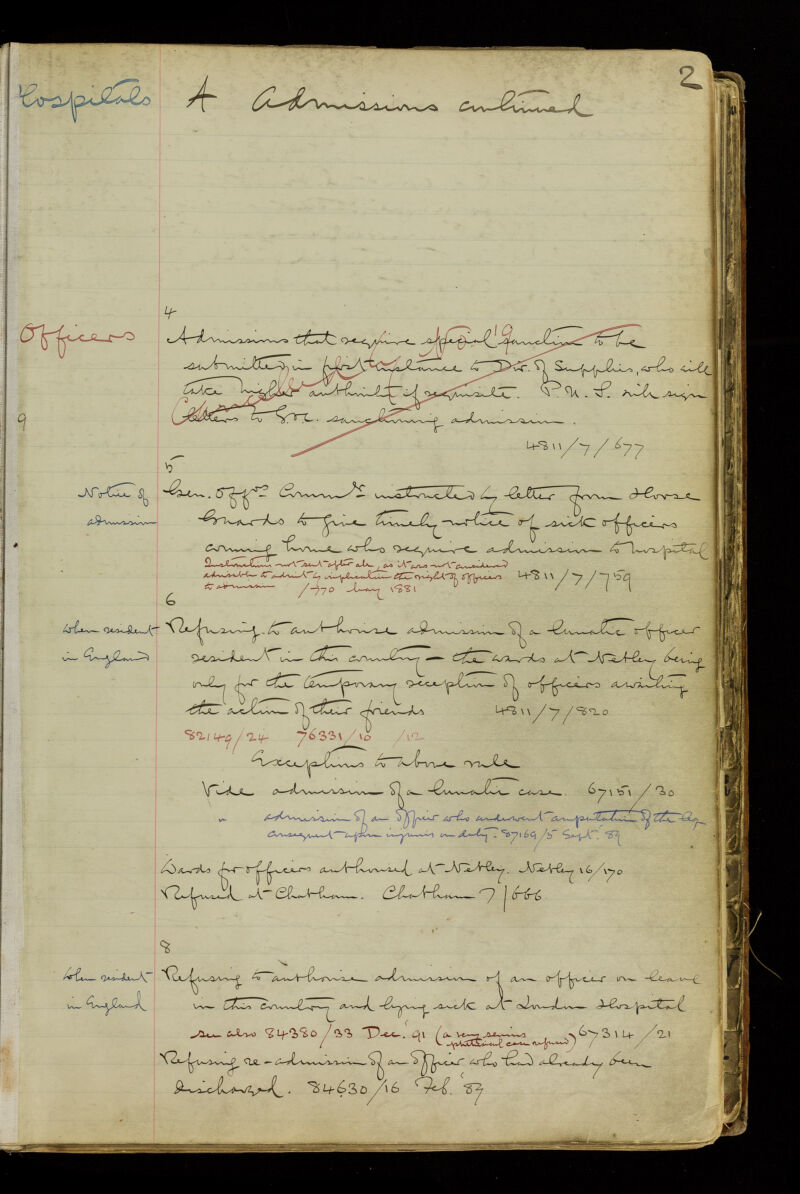 2
Hospitals A Admissions continued
4
Officers
Admissions that require special sanction to be
submitted in first instance to Dir. of Supplies, who will
take higher authority if requisite. P.U.S. will sign
letters to G.O.C. sanctioning admission.
Cancelled No. 19
4811/7/677
9
5
Notice of
admission
Gen. Offrs Commdg instructed by letter from Horse
Guards to give timely notice of sick officers
coming home who require admission to hospital
Instructions not sent after all, as it was not considered
advisable to admit by implication the right of officers
to admission /770 May 1881
4811/7/759
6
when resident
in England
Refusing to authorise admission of a lunatic officer
resident in this country – the wards at Netley being
only for the temporary reception of officers awaiting
the action of their friends 4811/7/820
82149/24 76331/10 /12
Exceptions to above rule
Vide admission of a lunatic case. 67151/30
" admission of an officer who underwent amputation of the leg
consequent upon injuries on duty. 87169/5 Sept. 89
Wards for officers authorised at Netley. Netley 16/170
Refused at Chatham. Chatham 7/666
8
when resident
in England
Refusing to authorise admission of an officer on leave
in this country and lying sick at London Hospital
see also 84380/33 Dec. '91 (a very serious
case refused) 67314/21
Refusing re-admission of an officer who had already been
discharged. 84630/16 Feb. '89